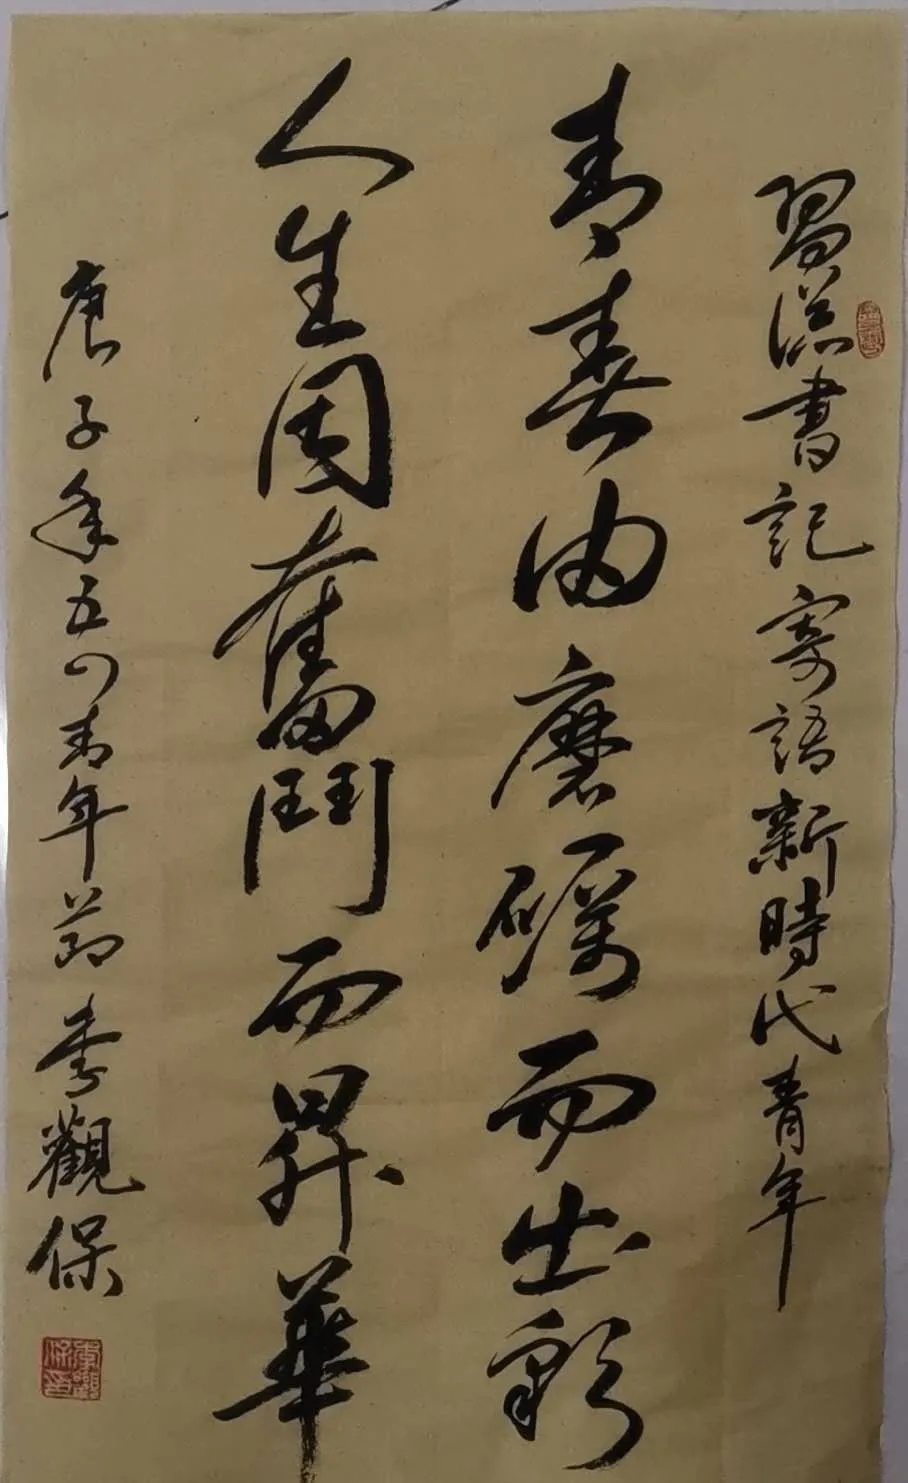 習總書記寄語新時代青年
青春由磨礪而出彩
人生因奮鬥而昇華
庚子年五四青年節 李觀保